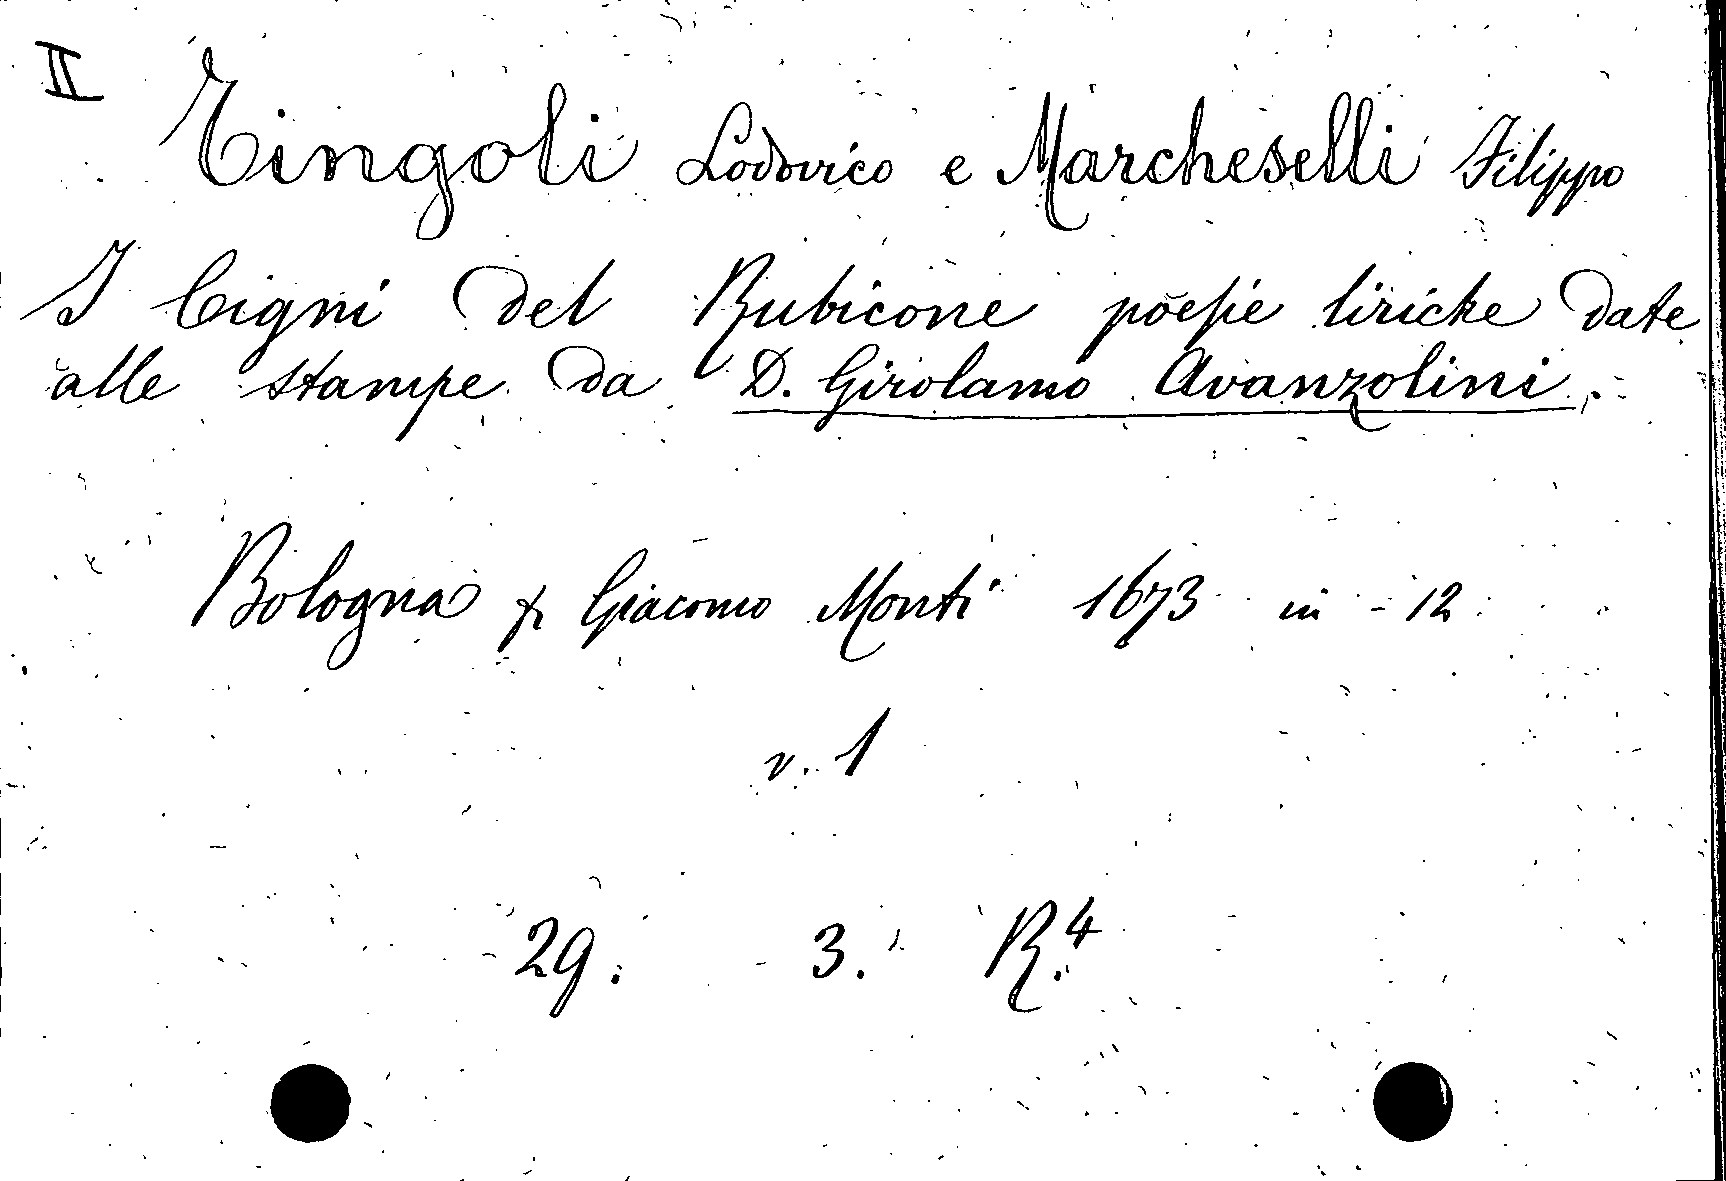 II
Tingoli Lodovico e Marcheselli Filippo
I Cigni del Rubicone poesie liriche date
alle stampe da D. Girolamo Avanzolini.
Bologna p. Giacomo Monti 1673 in - 12
v. 1
29. 3. R.4